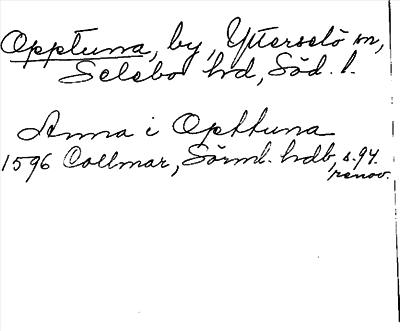 Opptuna, by, Ytterselö sn,
Selebo hd, Söd. l.
Anna i Opttuna
1596 Collmar, Sörml. hdb, s. 94.
renov.